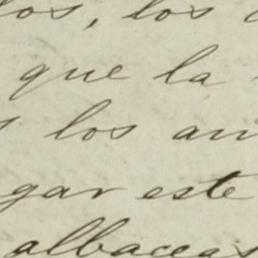 los, los
que la
los
gar este
albaceas